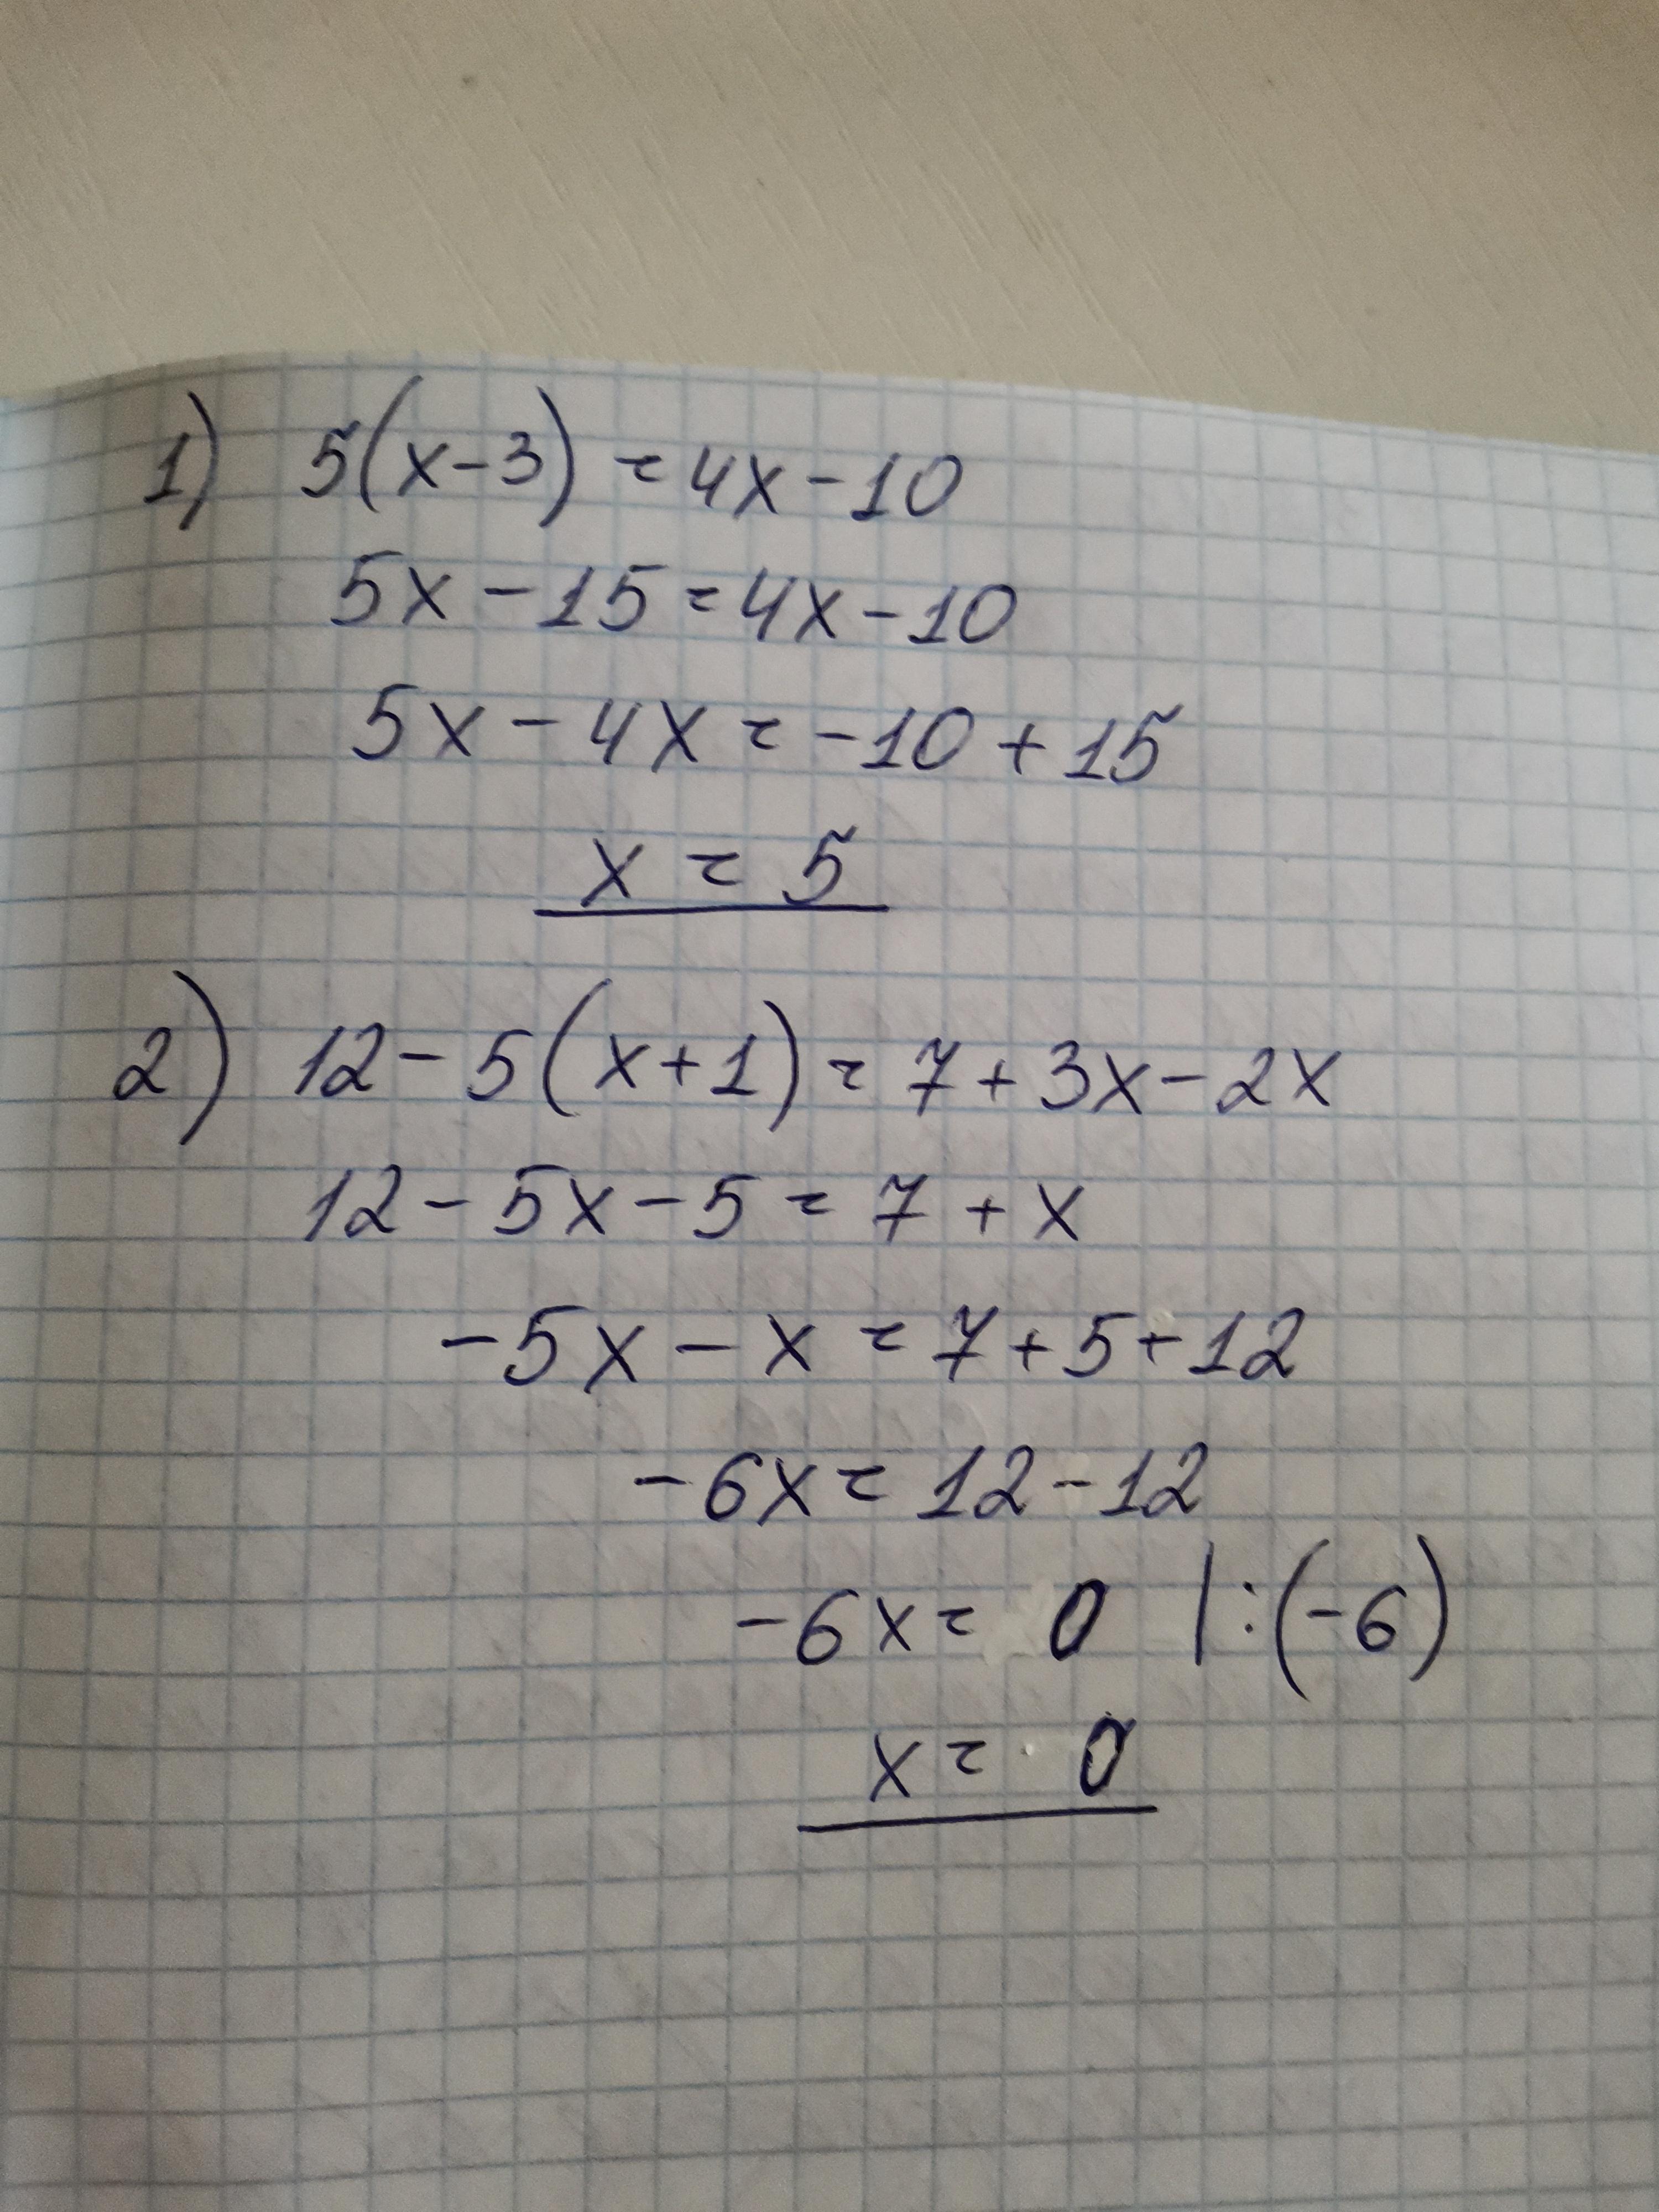 1) 5(x-3) = 4x-10
5x-15=4x-10
5x-4x=-10+15
x = 5
2) 12-5(x+1)=7+3x-2x
12-5x-5=7+x
-5x-x=7+5+12
-6x=12-12
-6x= 0 |:(-6)
x= 0